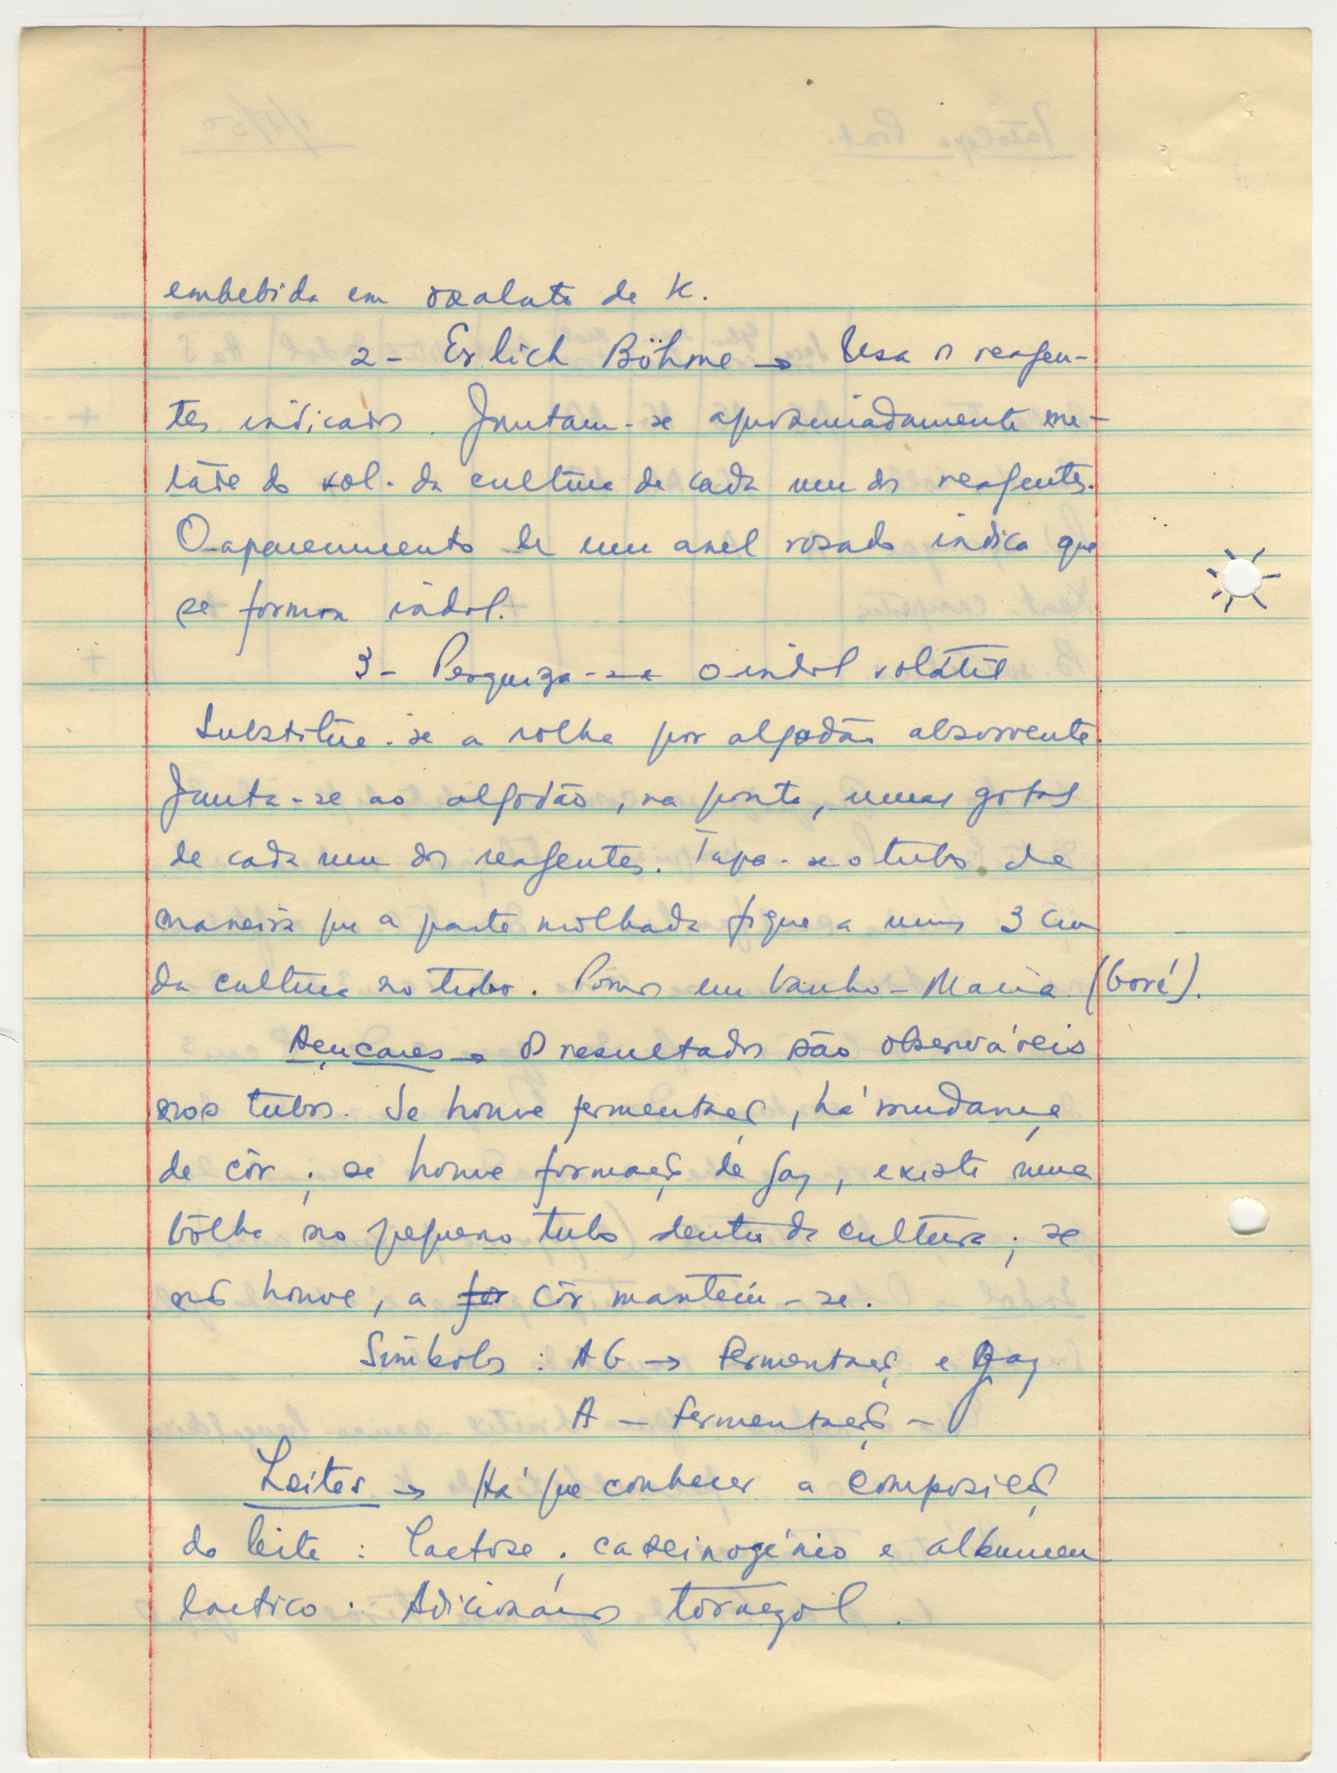 embebida em oxalato de K.
2 - Erlich Böhme → Usa os reagen-
tes indicados. Juntam-se aproximadamente me-
tade do vol. da cultura de cada um dos reagentes.
O aparecimento de um anel rosado indica que
se formou indol.
3 - Pesquiza-se o indol volátil
Substitúe-se a rolha por algodão absorvente.
Junta-se ao algodão, na ponta, umas gotas
de cada um dos reagentes. Tapa-se o tubo de
maneira que a parte molhada fique a uns 3 cm
da cultura no tubo. Pomos em banho-Maria
Açucares → Os resultados são observáveis
nos tubos. Se houve fermentação, há mudança
de côr; se houve formação de gaz, existe uma
bôlha no pequeno tubo dentro da cultura; se
não houve, a côr mantém-se.
Símbolos : AG → fermentação e gaz
A - fermentação -
Leites → Há que conhecer a composição
do leite : lactose, caseinogénio e albumen
lactico. Adicionamos tornezol.